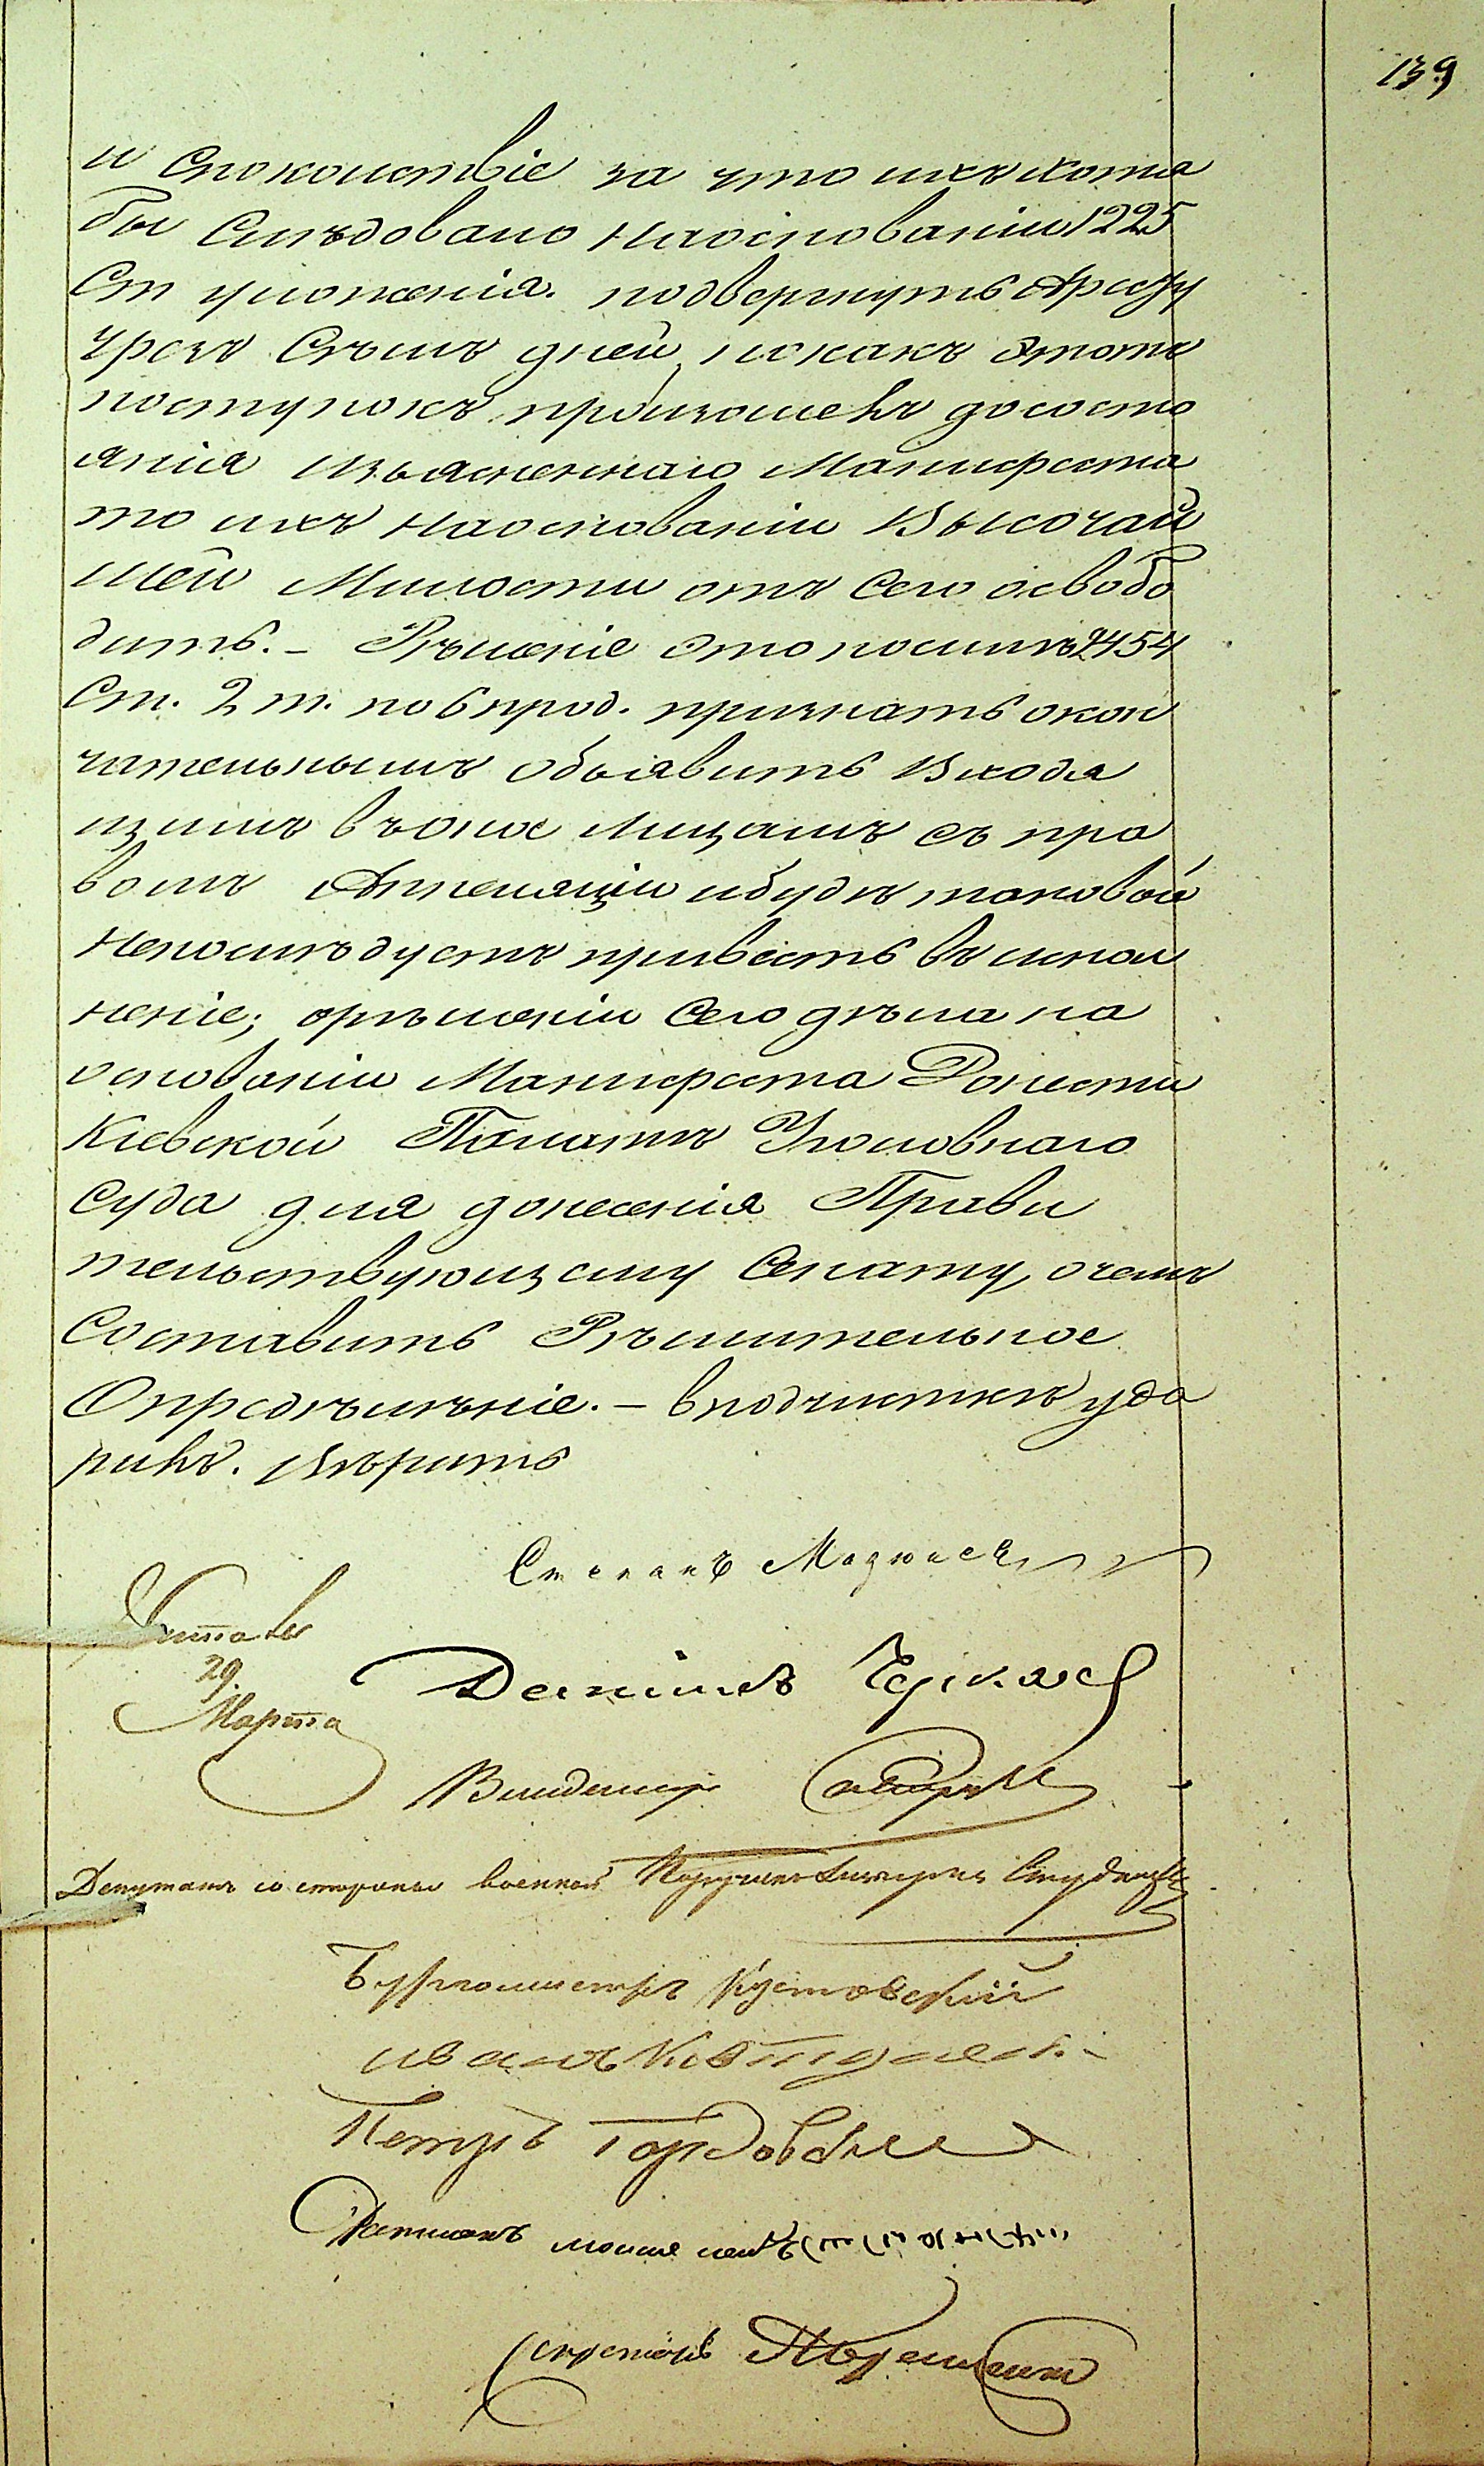 139
и спокойствіе за что ихъ хотя
бы Слѣдовало наоснованіи 1225
Ст уложенія. подвергнуть Аресту
чрезъ Съмь дней, но какъ этотъ
поступокъ, произошелъ дососто
янія изъясненнаго Манифеста
то ихъ наоснованіи Высочай
шей Милости отъ Сего освобо
дить. - Рѣшеніе это посилѣ 2454
Ст. 2 т. по 6 прод. признать окон
чательнымъ объявить Входя
щимъ въ оное Лицамъ съ пра
вомъ Аппеляціи ибудѣ таковой
непослѣдуетъ привесть въ испол
неніе; орѣшеніи Сего дѣла на
основаніи Манифеста Донести
Кіевской Палатѣ Уголовнаго
Суда для донесенія Прави
тельствующему Сенату, очемъ
Составить Рѣшительное
Опредѣлѣніе. - вподчисткѣ уда
рилъ. Вѣрить
Степанъ
Читалъ
29
Марта
Даніилъ Черкасъ
Владимиръ
Депутатъ со стороны военной Поручикъ
Бургомистръ Кустовскій
иванъ
Петръ Гордовскій
Ратманъ мошко
Секретарь